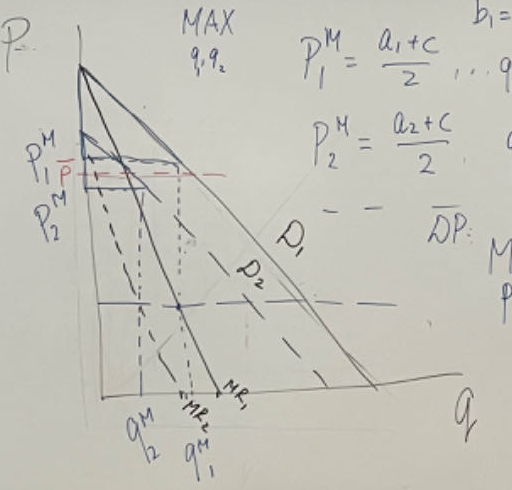 P
MAX
q₁q₂
b₁=
P₁ᴹ = (a₁+c)/2 ... q
P₂ᴹ = (a₂+c)/2
P₁ᴹ
P̄
P₂ᴹ
D̄P̄:
D₁
D₂
M
P
MR₂
MR₁
q₂ᴹ
q₁ᴹ
q